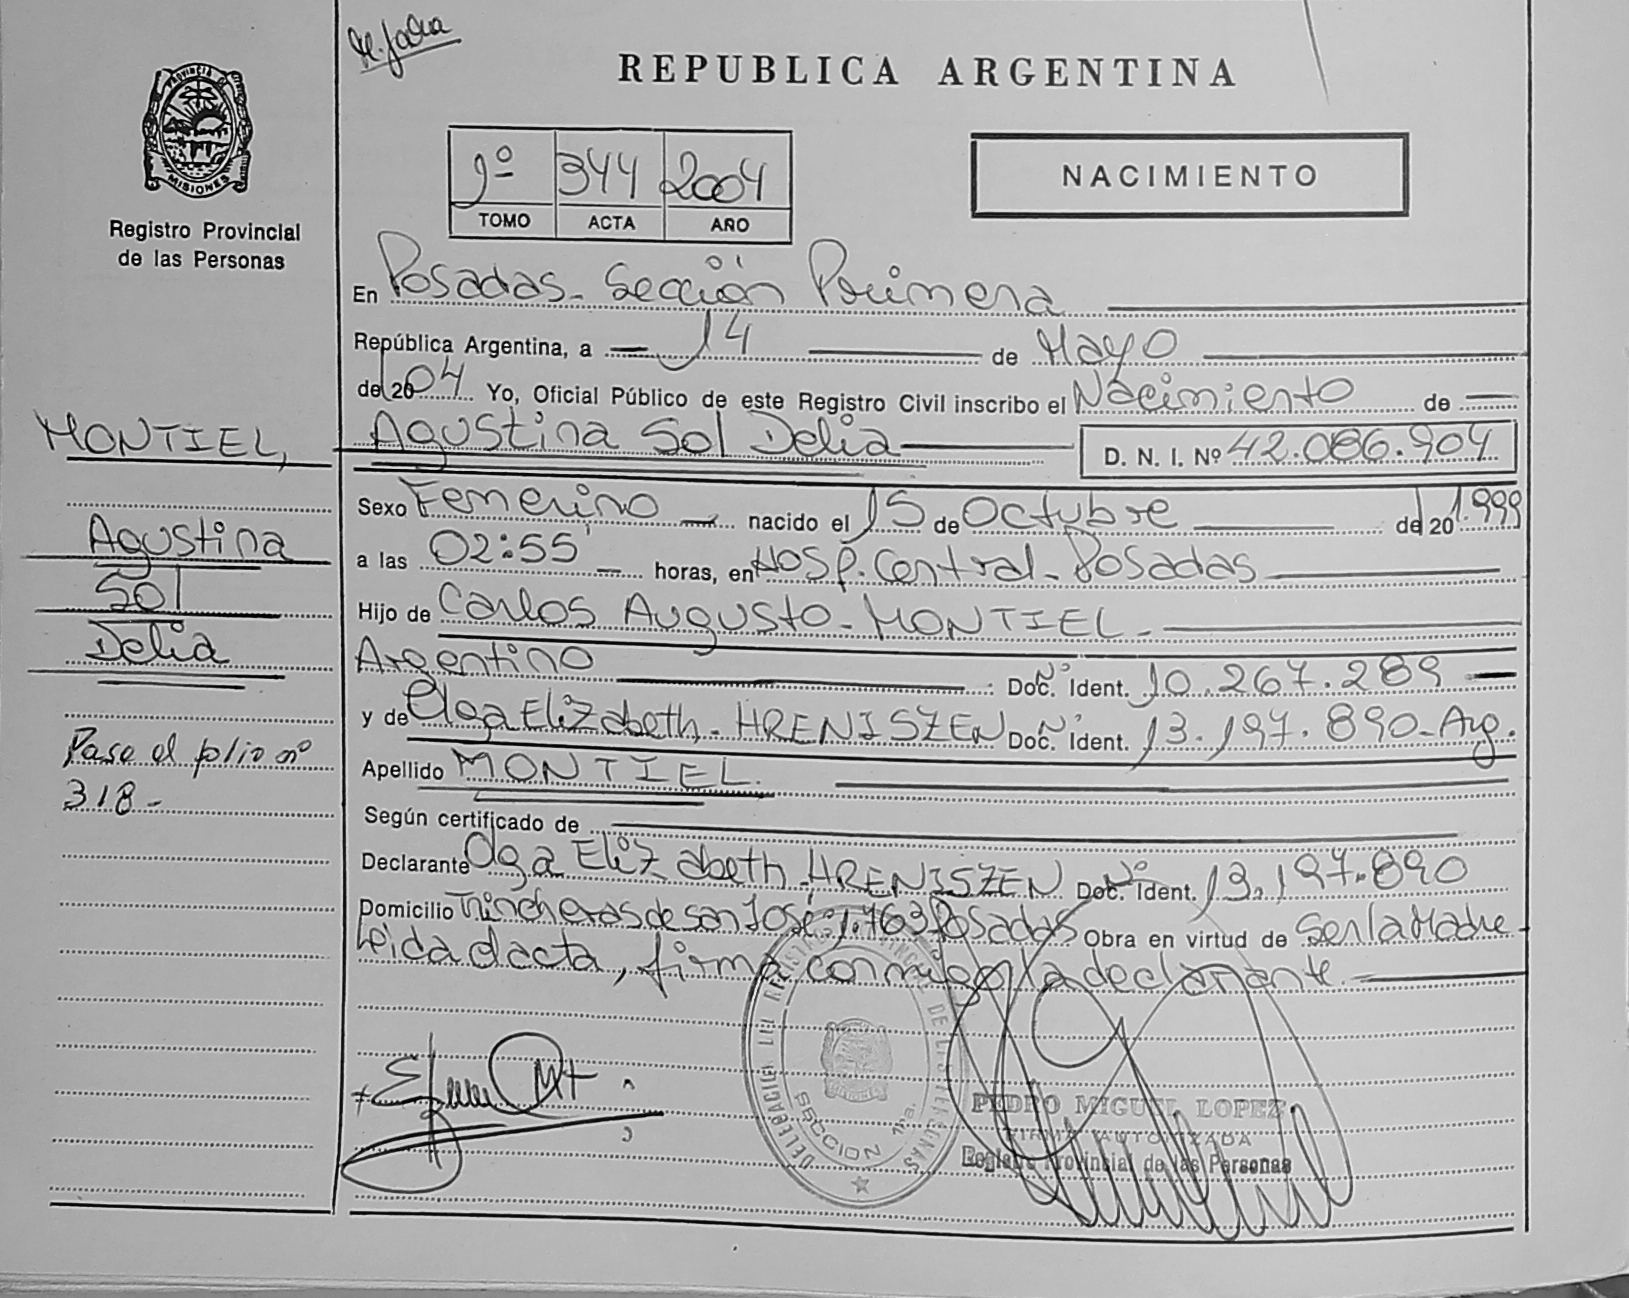 REPUBLICA ARGENTINA
PROVINCIA DE
MISIONES
Registro Provincial
de las Personas
1º 344 2004
TOMO ACTA AÑO
NACIMIENTO
En Posadas - Sección Primera
República Argentina, a 14 de Mayo
de 2004 Yo, Oficial Público de este Registro Civil inscribo el Nacimiento de
Agustina Sol Delia D. N. I. Nº 42.086.904
Sexo Femenino nacido el 15 de Octubre de 20 1.999
a las 02:55 horas, en Hosp. Central - Posadas
Hijo de Carlos Augusto - MONTIEL -
Argentino Nº Doc. Ident. 10.267.289
y de Olga Elizabeth - HRENISZEN Nº Doc. Ident. 13.197.890 - Arg.
Apellido MONTIEL.
Según certificado de
Declarante Olga Elizabeth HRENISZEN Nº Doc. Ident. 13.197.890
Domicilio Trincheras de San José 1.763 Posadas Obra en virtud de Ser la Madre
Leida el acta, firma conmigo la declarante.
MONTIEL,
Agustina
Sol
Delia
Pase al folio nº
318 -
SECCION 1ra.
PEDRO MIGUEL LOPEZ
FIRMA AUTORIZADA
Registro Provincial de las Personas